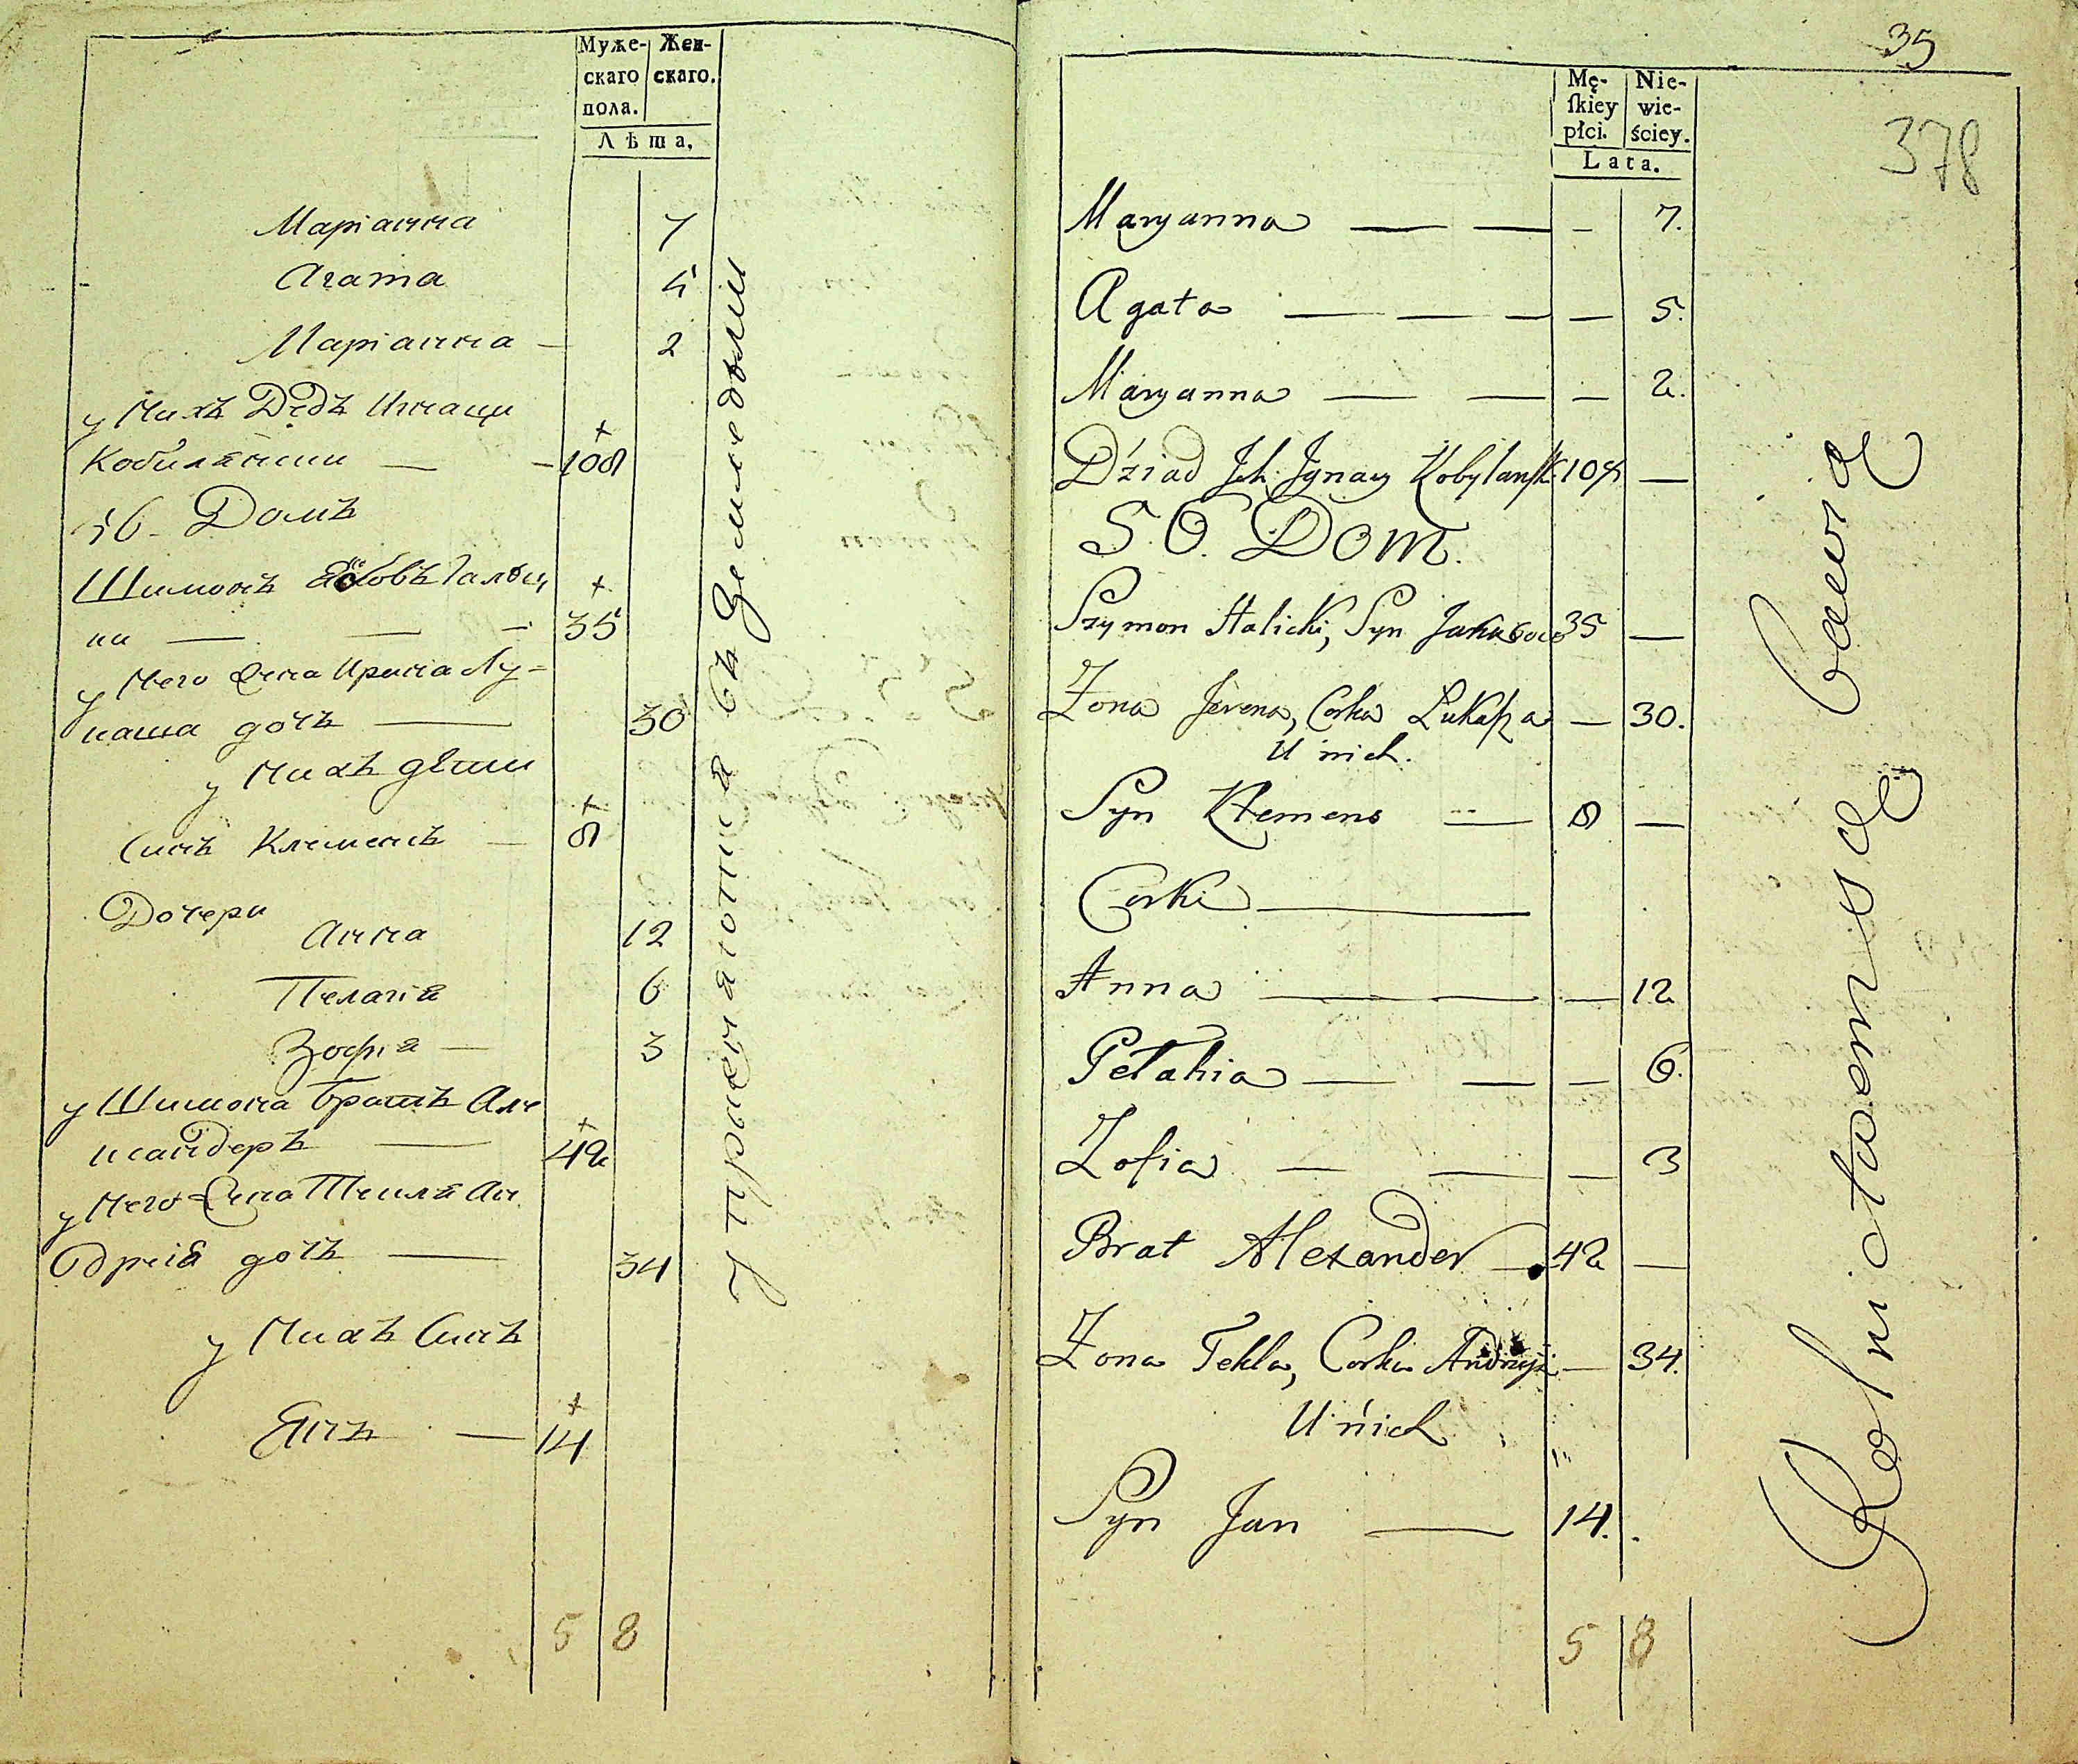 Муже- Жен-
скаго скаго.
пола.
Лѣта.
Маріанна 7
Агата 5
Маріанна — 2
у Нихъ Дедъ Игнаци
Кобиланѕки — 108
Домъ
Шимонъ
ки — — 35
у Него Жена Ирина Лу-
каша дочъ — 30
у Нихъ дѣти
Синъ Клеменсъ — 8
Дочери
Анна 12
Пелагіа 6
Зофіа — 3
у Шимона Братъ Але
ксандеръ — 42
у Него Жена Текля Ан
дрыя дочъ — 34
у Нихъ Синъ
Янъ — 14
5 8
упражняютця въ Земледѣлии
35
378
Mę- Nie-
ſkiey wie-
płci. ściey.
Lata.
Maryanna — — — 7.
Agata — — — — 5.
Maryanna — — — 2.
Dźiad Ich Ignacy Kobylanſk. 108 —
Dom.
Szymon Halicki, Syn Jakubow 35 —
Zona Jerena, Corka Lukaſza — 30.
U nich.
Syn Klemens — 8 —
Corki —
Anna — — — 12
Pelahia — — — 6.
Zofia — — — 3
Brat Alexander — 42 —
Zona Tekla, Corka Andrzyi — 34.
U nich
Syn Jan — 14.
5 8
Rolnictwem się bawią